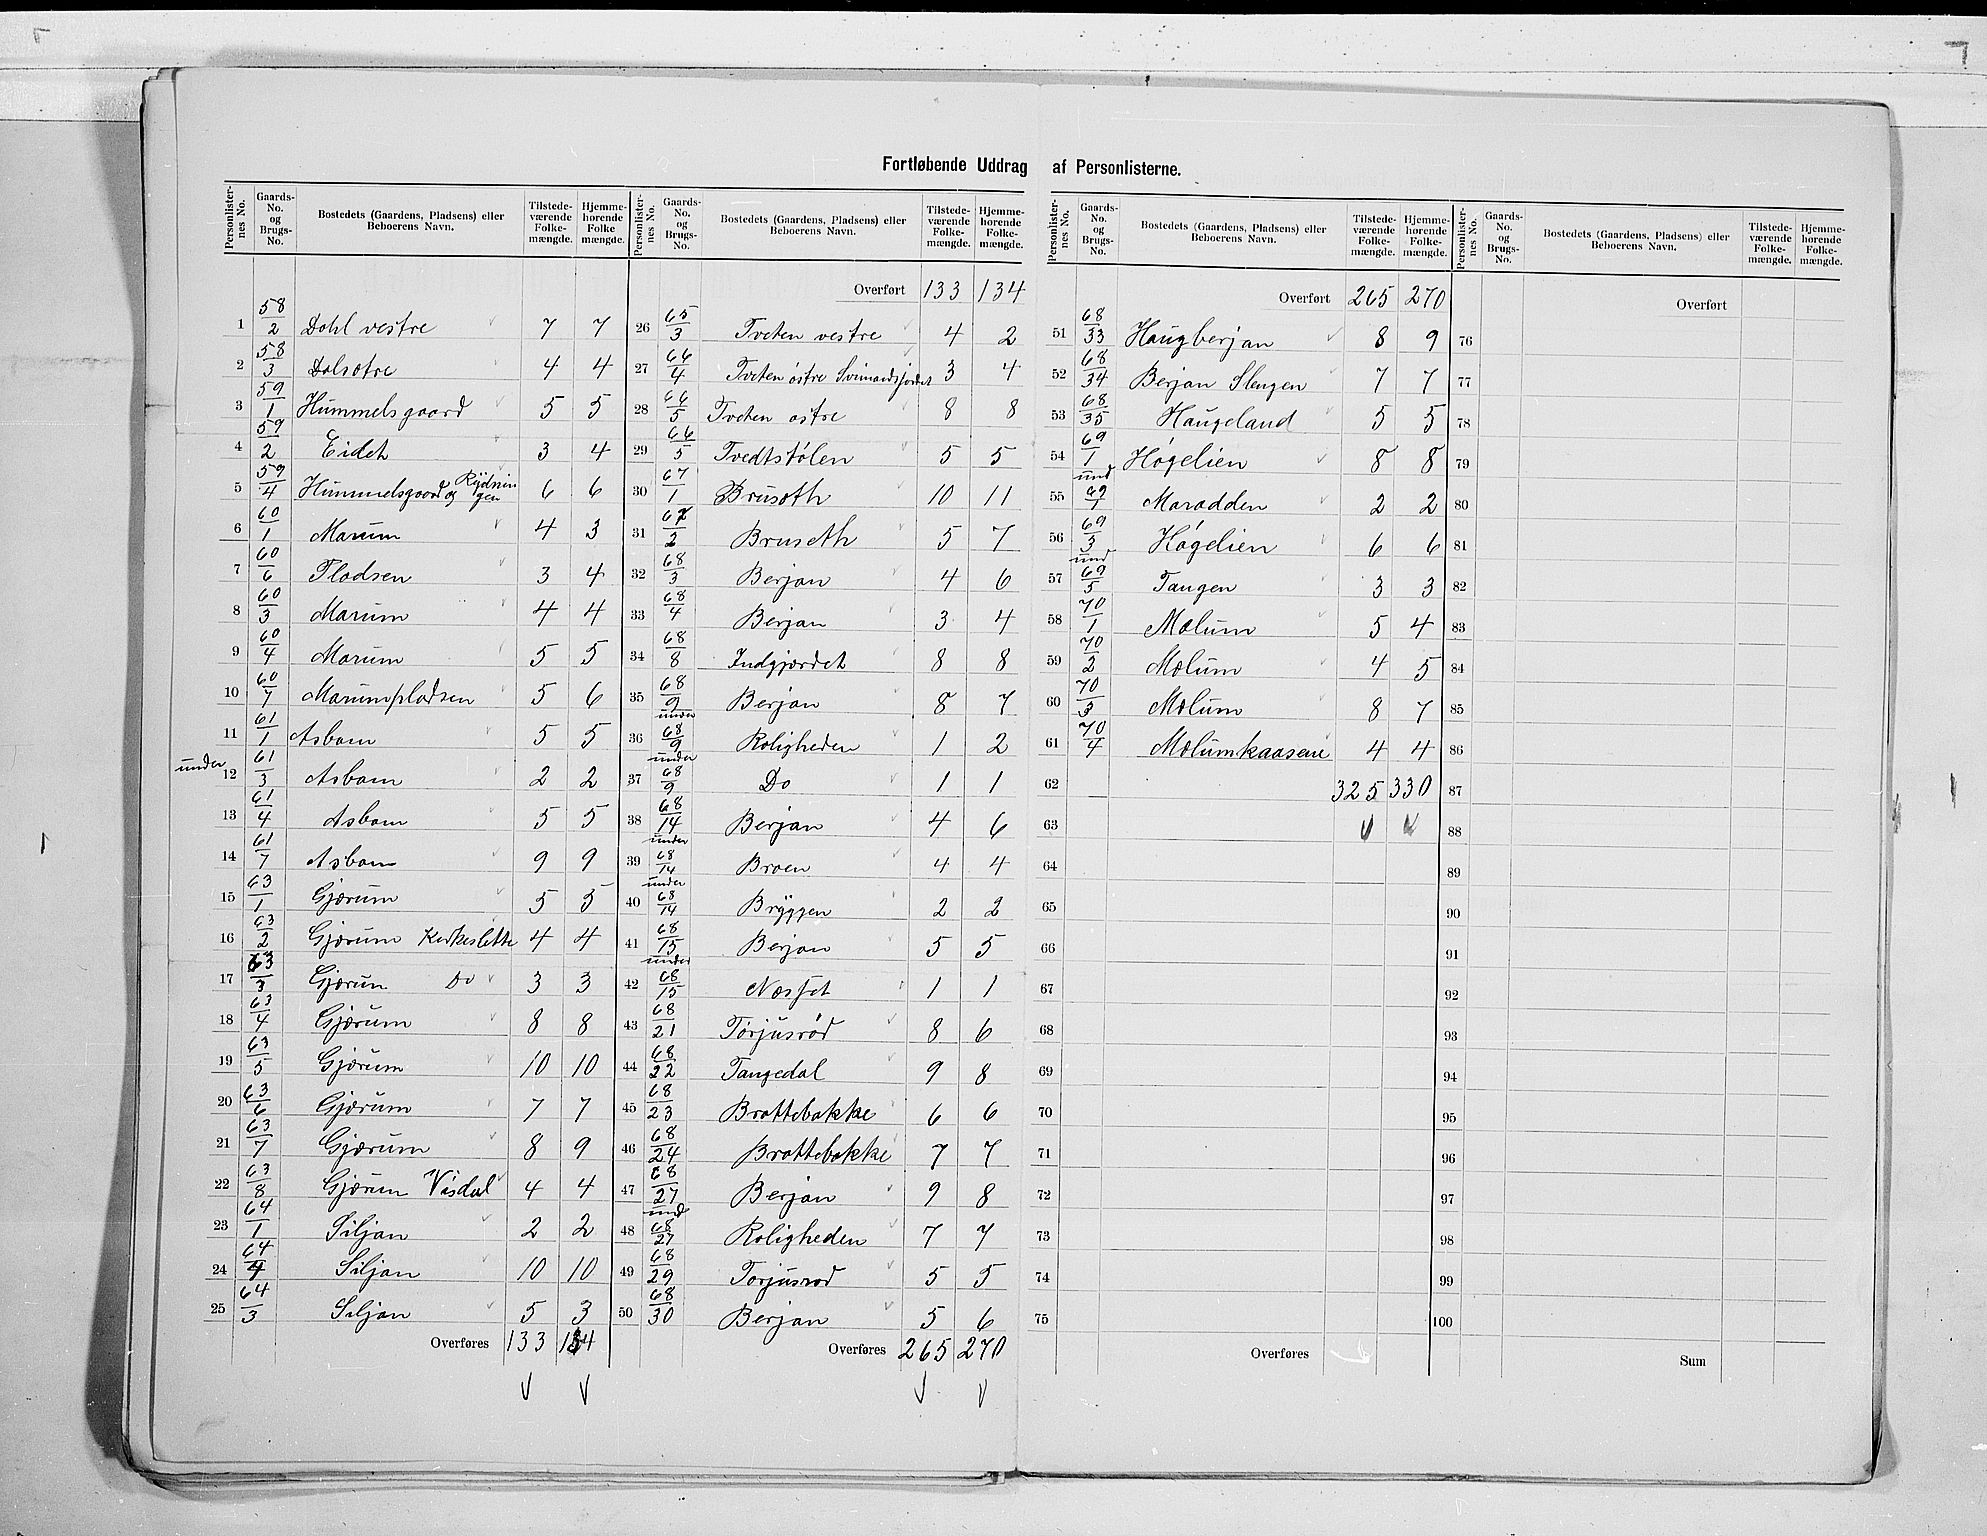 Fortløbende Uddrag af Personlisterne.
Personlisternes No. | Gaards-No. og Brugs-No. | Bostedets (Gaardens, Pladsens) eller Beboerens Navn. | Tilstedeværende Folkemængde. | Hjemmehorende Folkemængde.
1 58/2 Dohl vestre 7 7
2 58/3 Dolsotre 4 4
3 59/1 Hummelsgaard 5 5
4 59/2 Eidet 3 4
5 59/4 Hummelsgaard og Rydningen 6 6
6 60/1 Marum 4 3
7 60/6 Pladsen 3 4
8 60/3 Marum 4 4
9 60/4 Marum 5 5
10 60/7 Marumpladsen 5 6
11 61/1 Asbom 5 5
under 12 61/3 Asbom 2 2
13 61/4 Asbom 5 5
14 61/7 Asbom 9 9
15 63/1 Gjærum 5 5
16 63/2 Gjærum Kirkeslette 4 4
17 63/3 Gjærum Do 3 3
18 63/4 Gjærum 8 8
19 63/5 Gjærum 10 10
20 63/6 Gjærum 7 7
21 63/7 Gjærum 8 9
22 63/8 Gjærum Visdal 4 4
23 64/1 Siljan 2 2
24 64/4 Siljan 10 10
25 64/3 Siljan 5 3
Overføres 133 134
Overført 133 134
26 65/3 Tveten vestre 4 2
27 66/4 Tveten østre 3 4
28 66/5 Tveten østre 8 8
29 66/5 Tvedtstølen 5 5
30 67/1 Bruseth 10 11
31 67/2 Bruseth 5 7
32 68/3 Berjan 4 6
33 68/4 Berjan 3 4
34 68/8 Indgjærdet 8 8
35 68/9 Berjan 8 7
36 under 68/9 Roligheden 1 2
37 under 68/9 Do 1 1
38 68/14 Berjan 4 6
39 under 68/14 Broen 4 4
40 under 68/14 Bryggen 2 2
41 68/15 Berjan 5 5
42 under 68/15 Næsset 1 1
43 68/21 Torjusrød 8 6
44 68/22 Tangedal 9 8
45 68/23 Brattebakke 6 6
46 68/24 Brattebakke 7 7
47 68/27 Berjan 9 8
48 und 68/27 Roligheden 7 7
49 68/29 Torjusrød 5 5
50 68/30 Berjan 5 6
Overføres 265 270
Overført 265 270
51 68/33 Haugberjan 8 9
52 68/34 Berjan Slengen 7 7
53 68/35 Haugeland 5 5
54 69/1 Høgelien 8 8
55 und 69/1 Maradden 2 2
56 69/5 Høgelien 6 6
57 und 69/5 Tangen 3 3
58 70/1 Mælum 5 4
59 70/2 Mælum 4 5
60 70/3 Mælum 8 7
61 70/4 Mælumkaasene 4 4
62 325 330
63
64
65
66
67
68
69
70
71
72
73
74
75
Overføres
Overført
76
77
78
79
80
81
82
83
84
85
86
87
88
89
90
91
92
93
94
95
96
97
98
99
100
Sum